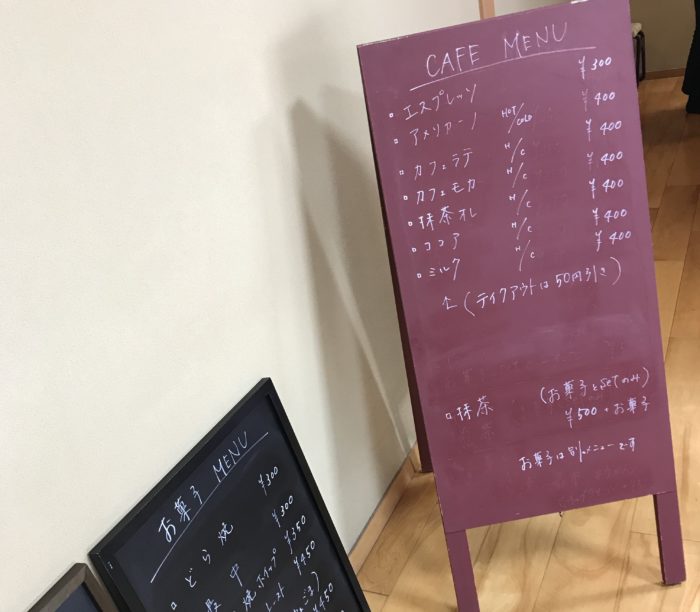 CAFE MENU
▫ エスプレッソ ¥300
▫ アメリカーノ HOT/COLD ¥400
▫ カフェラテ H/C ¥400
▫ カフェモカ H/C ¥400
▫ 抹茶オレ H/C ¥400
▫ ココア H/C ¥400
▫ ミルク H/C ¥400
↑(テイクアウトは50円引き)
▫ 抹茶 (お菓子とsetのみ)
¥500+お菓子
お菓子は別メニューです
お菓子 MENU
▫ どら焼 ¥300
中 ¥300
焼ホイップ ¥350
¥450
¥450